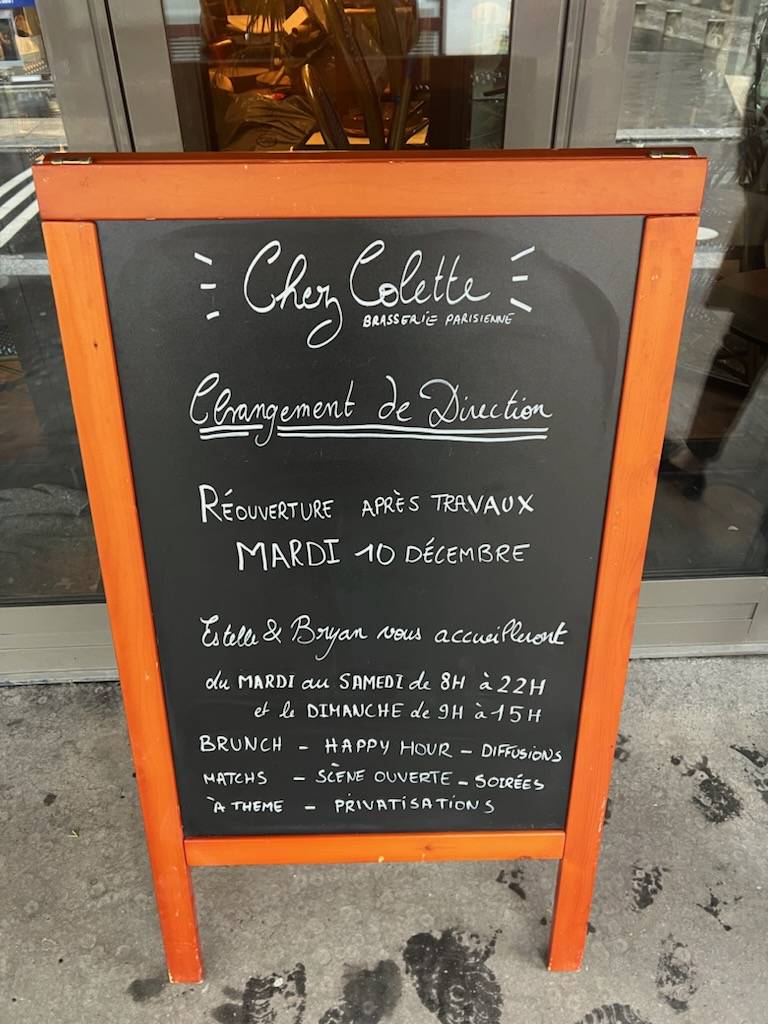 Chez Colette
BRASSERIE PARISIENNE
Changement de Direction
RÉOUVERTURE APRÈS TRAVAUX
MARDI 10 DÉCEMBRE
Estelle & Bryan vous accueilleront
du MARDI au SAMEDI de 8H à 22H
et le DIMANCHE de 9H à 15H
BRUNCH - HAPPY HOUR - DIFFUSIONS
MATCHS - SCÈNE OUVERTE - SOIRÉES
À THEME - PRIVATISATIONS